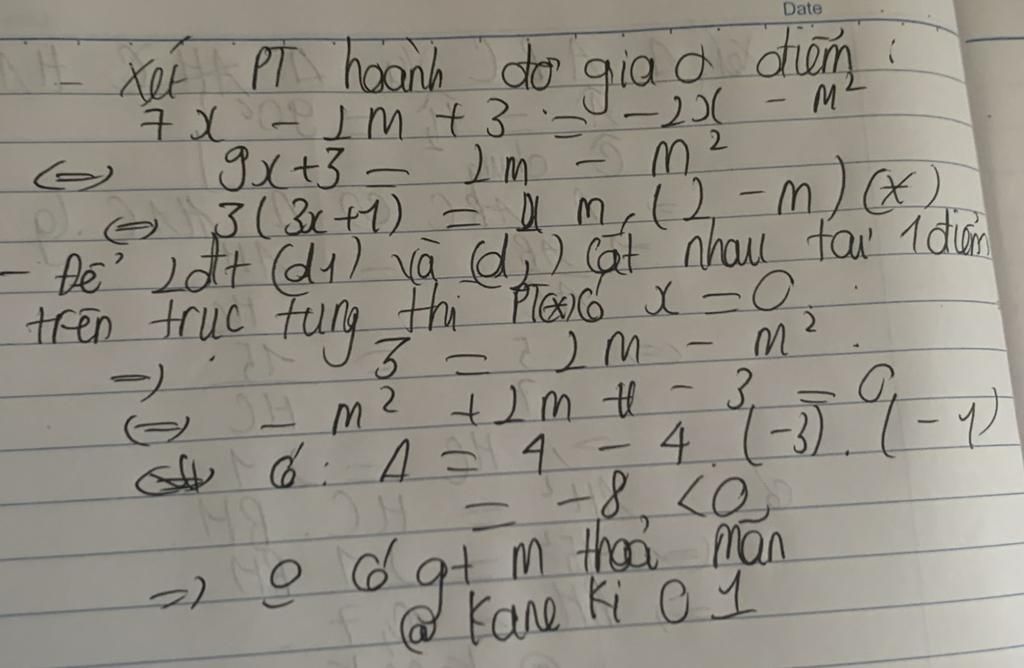 Date
- Xét PT hoành độ giao điểm:
7x - 2m + 3 = -2x - m²
<=> 9x+3 = 2m - m²
<=> 3(3x+1) = m.(2-m)(*)
- Để 2đt (d1) và (d2) cắt nhau tại 1điểm
trên trục tung thì PT(*)có x = 0.
=> 3 = 2m - m².
<=> - m² + 2m - 3 = 0
Có: Δ = 4 - 4.(-3).(-1)
= -8 < 0
=> 0 có gt m thoả mãn
@kane ki 01